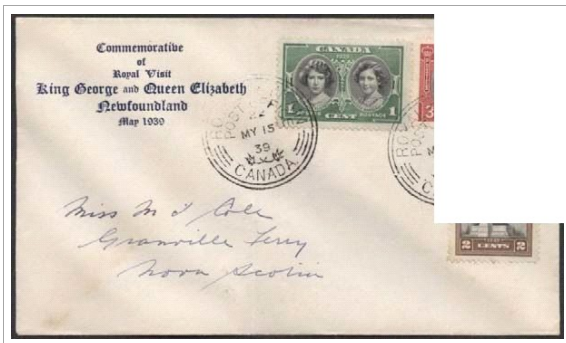 Commemorative
of
Royal Visit
King George and Queen Elizabeth
Newfoundland
May 1939
CANADA
1 CENT 1
POSTAGE
3
MY 15
39
CANADA
Miss M I Cole
Granville Ferry
Nova Scotia
2 CENTS 2